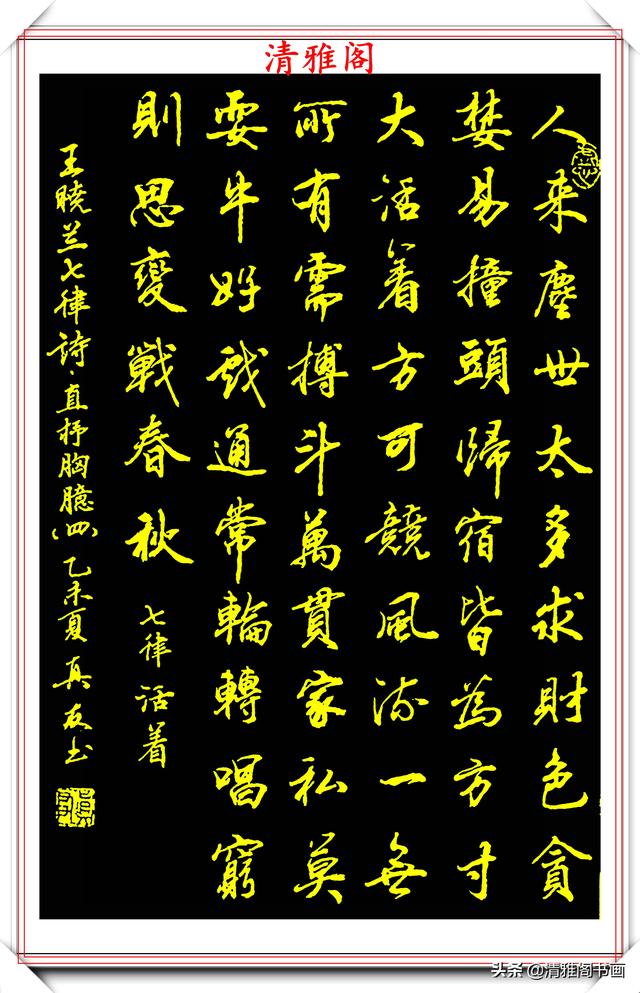 清雅阁
人来塵世太多求財色貪
婪易撞頭歸宿皆為方寸
大活着方可競風流一無
所有需搏斗萬貫家私莫
耍牛好戏通常輪轉唱窮
則思變戰春秋
七律活着
王曉兰七律詩·直抒胸臆(四)乙未夏真友书
头条@清雅阁书画